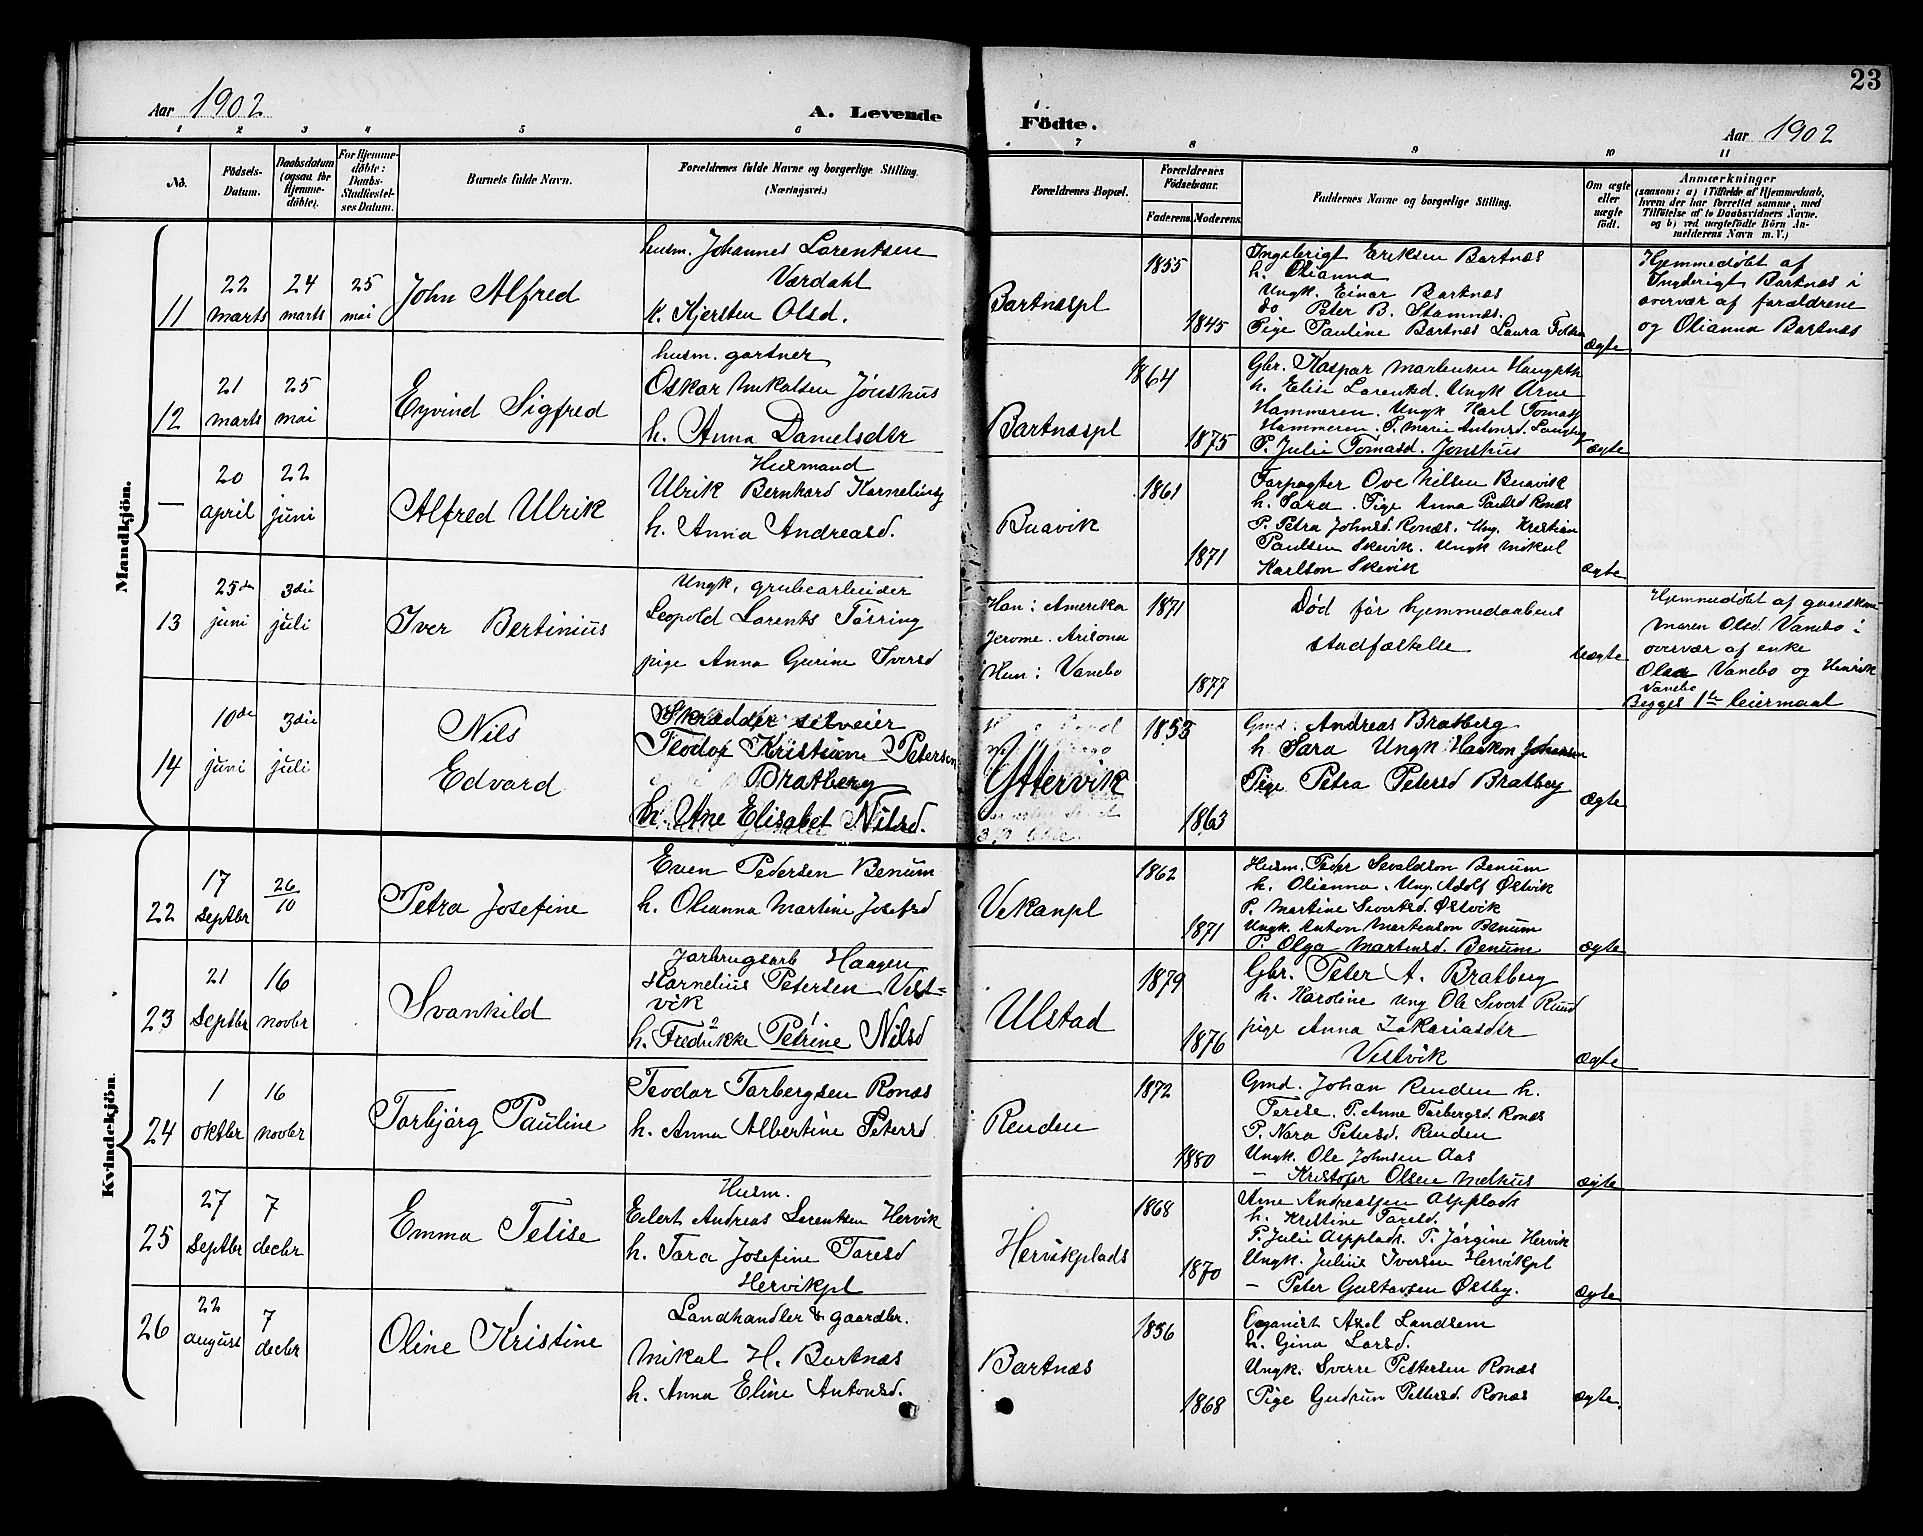 23
Aar 1902
A. Levende
Födte.
Aar 1902
1 2 3 4 5 6 7 8 9 10 11
No.
Födsels-Datum.
Daabsdatum (ogsaa for Hjemme-döbte).
For Hjemme-döbte: Daabs-Stadfæstel-ses Datum.
Barnets fulde Navn.
Forældrenes fulde Navne og borgerlige Stilling.
(Næringsvei.)
Forældrenes Bopæl.
Forældrenes Födselsaar.
Faderens. Moderens.
Faddernes Navne og borgerlige Stilling.
Om ægte eller uægte födt.
Anmærkninger
(saasom: a) i Tilfælde af Hjemmedaab,
hvem der har forrettet samme, med
Tilföielse af to Daabsvidners Navne.
og b) ved uægtefödte Börn An-
melderens Navn m. V.)
Mandkjön.
11
22 marts
24 marts
25 mai
John Alfred
husm. Johannes Lorentsen
Værdahl
k. Kjersten Olsd.
Bartnæspl
1855
1845
Ingebrigt Eriksen Bartnæs
h. Olianna
Ungk. Einar Bartnæs
do Peter B. Stamnæs.
Pige Pauline Bartnæs Laura
ægte
Hjemmedøbt af
Ingebrigt Bartnæs i
overvær af forældrene
og Olianna Bartnæs
12
21 marts
25 mai
Eyvind Sigfred
husm. gartner
Oskar Mikalsen Jønshus
h. Anna Danielsdtr
Bartnæspl
1864
1875
Gbr. Kaspar Martensen
h. Elise Lorentsd. Ungk Arne
Hammeren. Ungk Karl Tomas
Hammeren. P. Marie Antonsd.
P. Julie Tomasd. Jønshus
ægte
—
20 april
22 juni
Alfred Ulrik
Husmand
Ulrik Bernhard Kornelius
h. Anna Andreasd.
Buavik
1861
1871
Forpagter Ove Nilsen Buavik
h. Sara. Pige Anna Paulsd Ronæs
P. Petra Johnsd. Ronæs. Ung. Kristian
Paulsen Skevik. Ungk Mikal
Karlson Skevik
ægte
13
25de juni
3die juli
Iver Bertinius
Ungk, grubearbeider
Leopold Lorents Tørring
pige Anna Gurine Iversd
Han: Amerika
Jerome. Arisona
Hun: Vanebo
1871
1877
Død før hjemmedaabens
stadfæstelse
uægte
Hjemmedøbt af gaardkone
Maren Olsd. Vanebo i
overvær af enke
Olea Vanebo og Henrik
Vanebo
Begges 1te leiermaal
14
10de juni
3die juli
Nils
Edvard
Skrædder selveier
Teodor Kristian Petersen
Bratberg
h. Ane Elisabet Nilsd.
Yttervik
1853
1863
Gmd. Andreas Bratberg
h Sara Ungk Haakon Johansen
Pige Petra Petersd Bratberg
ægte
Kvindekjön.
22
17 septbr
26/10
Petra Josefine
Even Pedersen Benum
h. Olianna Martine Josefsd
Vekanpl
1862
1871
Husm. Peder Sevaldson Benum
h. Olianna. Ung. Adolf Østvik
P. Martine Sivertsd. Østvik
Ungk. Anton Martenson Benum
P. Olga Martensd. Benum
ægte
23
21 septbr
16 novbr
Svanhild
Jorbrugsarb Haagen
Kornelius Petersen Vest=
vik
h. Fredrikke 2 Petrine 1 Nilsd
Ulstad
1879
1876
Gbr. Peter A. Bratberg
h. Karoline Ung Ole Sivert Ruud
pige Anna Zakariasdtr
Vestvik
ægte
24
1 oktbr
16 novbr
Torbjørg Pauline
Teodor Torbergsen Ronæs
h. Anna Albertine Petersd
Renden
1872
1880
Gmd. Johan Renden h.
Terese. P. Anne Torbergsd. Ronæs
P. Nora Petersd. Renden
Ungk. Ole Johnsen Aas
— Kristofer Olsen Melhus
ægte
25
27 septbr
7 decbr
Emma Telise
Husm.
Edert Andreas Lorentsen Hervik
h. Tora Josefine Toresd
Hervikpl
Hervikplads
1868
1870
Arne Andreassen Aspplads
h. Kristine Toresd.
P. Julie Aspplads. P. Jørgine Hervik
Ungk. Julius Iversen Hervikpl
— Peter Gustavsen Østby.
ægte
26
22 august
7 decbr
Oline Kristine
Landhandler & gaardbr.
Mikal H. Bartnæs
h. Anna Eline Antonsd.
Bartnæs
1856
1868
Organist Axel Landsem
h. Gina Larsd.
Ungk. Sverre Pettersen Ronæs
Pige Gudrun Pettersd. Ronæs
ægte.